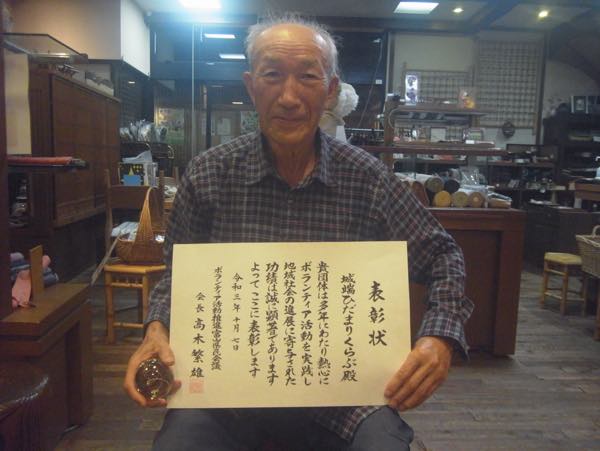 表彰状
城端ひだまりくらぶ殿
貴団体は多年にわたり熱心に
ボランティア活動を実践し
地域社会の進展に寄与された
功績は誠に顕著であります
よってここに表彰します
令和三年十月七日
ボランティア活動推進富山県民会議
会長 髙木繁雄